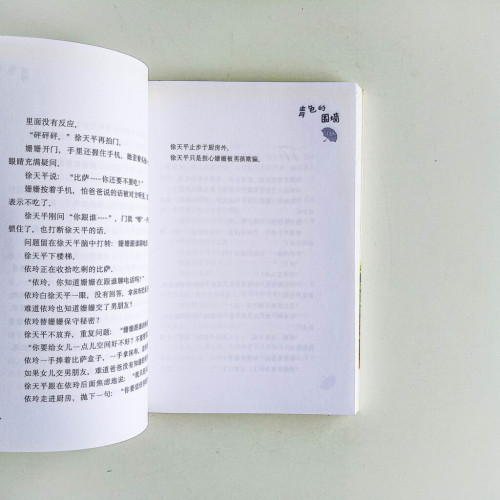 里面没有反应,
“砰砰砰,”徐天平再拍门,
姗姗开门,手里还握住手机,
眼睛充满疑问,
徐天平说:“比萨……你还要不要吃?”
姗姗按着手机,怕爸爸说的话被对方听
表示不吃了,
徐天平刚问“你跟谁……”,门就“嘭”一
锁住了,也打断徐天平的话,
问题留在徐天平脑中打转:姗姗跟谁聊电
徐天平下楼梯,
依玲正在收拾吃剩的比萨,
“依玲,你知道姗姗在跟谁聊电话吗?”
依玲白徐天平一眼,没有回答,拿抹布
难道依玲也知道姗姗交了男朋友?
依玲替姗姗保守秘密?
徐天平不放弃,重复问题:“姗姗跟谁
“你要给女儿一点儿空间好不好?不要
依玲一手捧着比萨盒子,一手拿抹布,
如果女儿交男朋友,难道爸爸没有知道
徐天平跟在依玲后面焦虑地说:“我只
依玲走进厨房,抛下一句:“你要适
青色的
困惑
徐天平止步于厨房外,
徐天平只是担心姗姗被男孩欺骗,